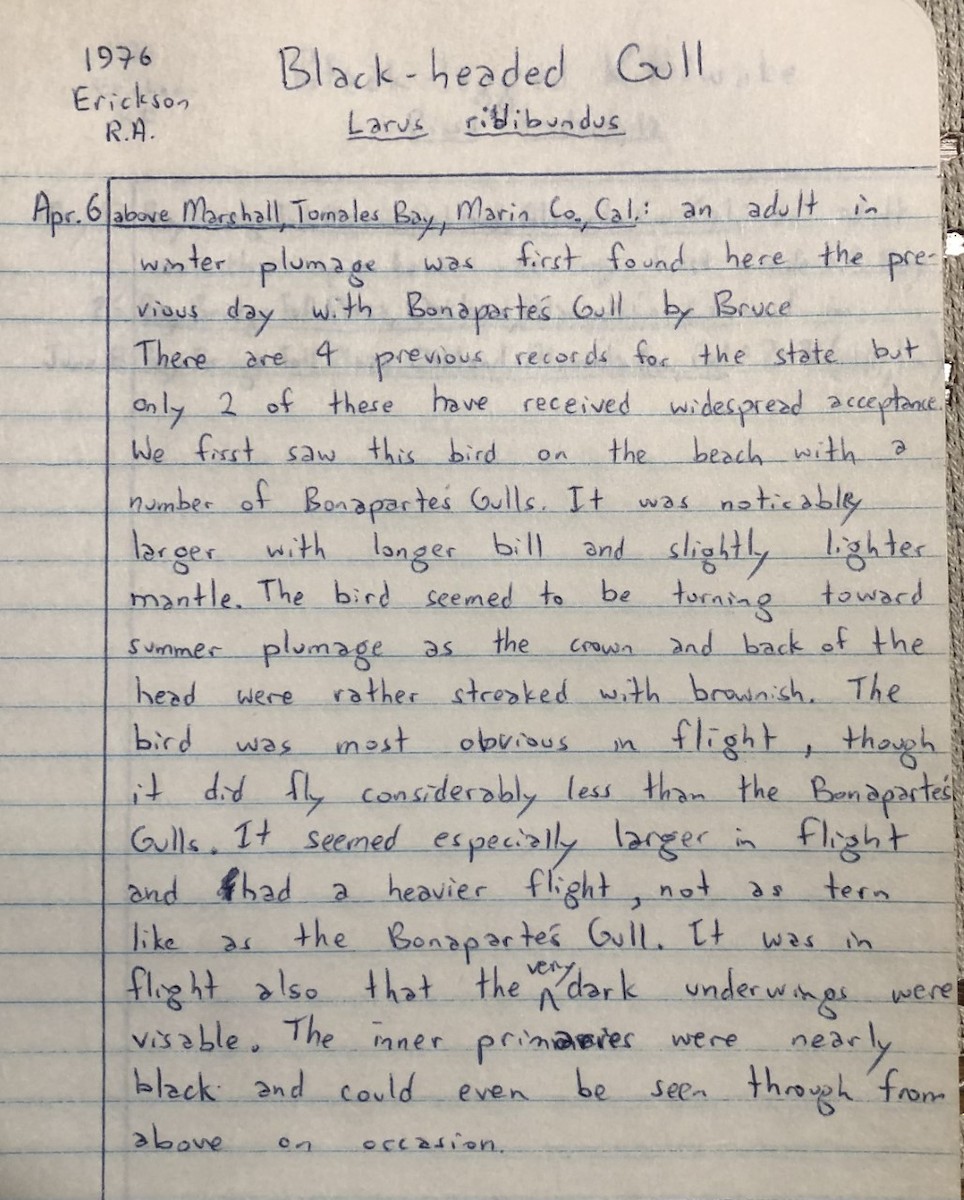 1976
Erickson
R.A.
Black-headed Gull
Larus ridibundus
Apr. 6 above Marshall, Tomales Bay, Marin Co., Cal.: an adult in
winter plumage was first found here the pre-
vious day with Bonaparte's Gull by Bruce
There are 4 previous records for the state but
only 2 of these have received widespread acceptance.
We first saw this bird on the beach with a
number of Bonaparte's Gulls. It was noticably
larger with longer bill and slightly lighter
mantle. The bird seemed to be turning toward
summer plumage as the crown and back of the
head were rather streaked with brownish. The
bird was most obvious in flight, though
it did fly considerably less than the Bonaparte's
Gulls. It seemed especially larger in flight
and had a heavier flight, not as tern
like as the Bonaparte's Gull. It was in
flight also that the very dark underwings were
visable. The inner primaries were nearly
black and could even be seen through from
above on occasion.